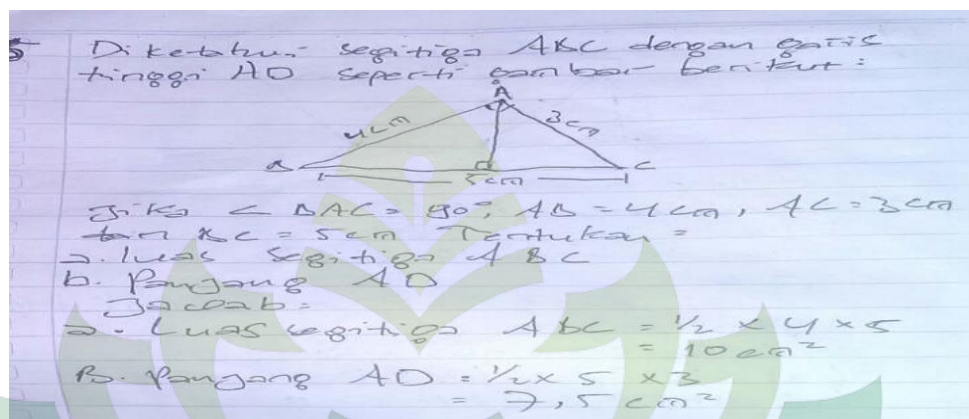 5 Diketahui segitiga ABC dengan garis
tinggi AD seperti gambar berikut :
A
4 cm 3 cm
B D C
5 cm
Jika < BAC = 90°, AB = 4 cm, AC = 3 cm
dan BC = 5 cm Tentukan =
a. luas segitiga ABC
b. Panjang AD
Jawab =
a. Luas segitiga ABC = 1/2 x 4 x 5
= 10 cm²
B. Panjang AD = 1/2 x 5 x 3
= 7,5 cm²